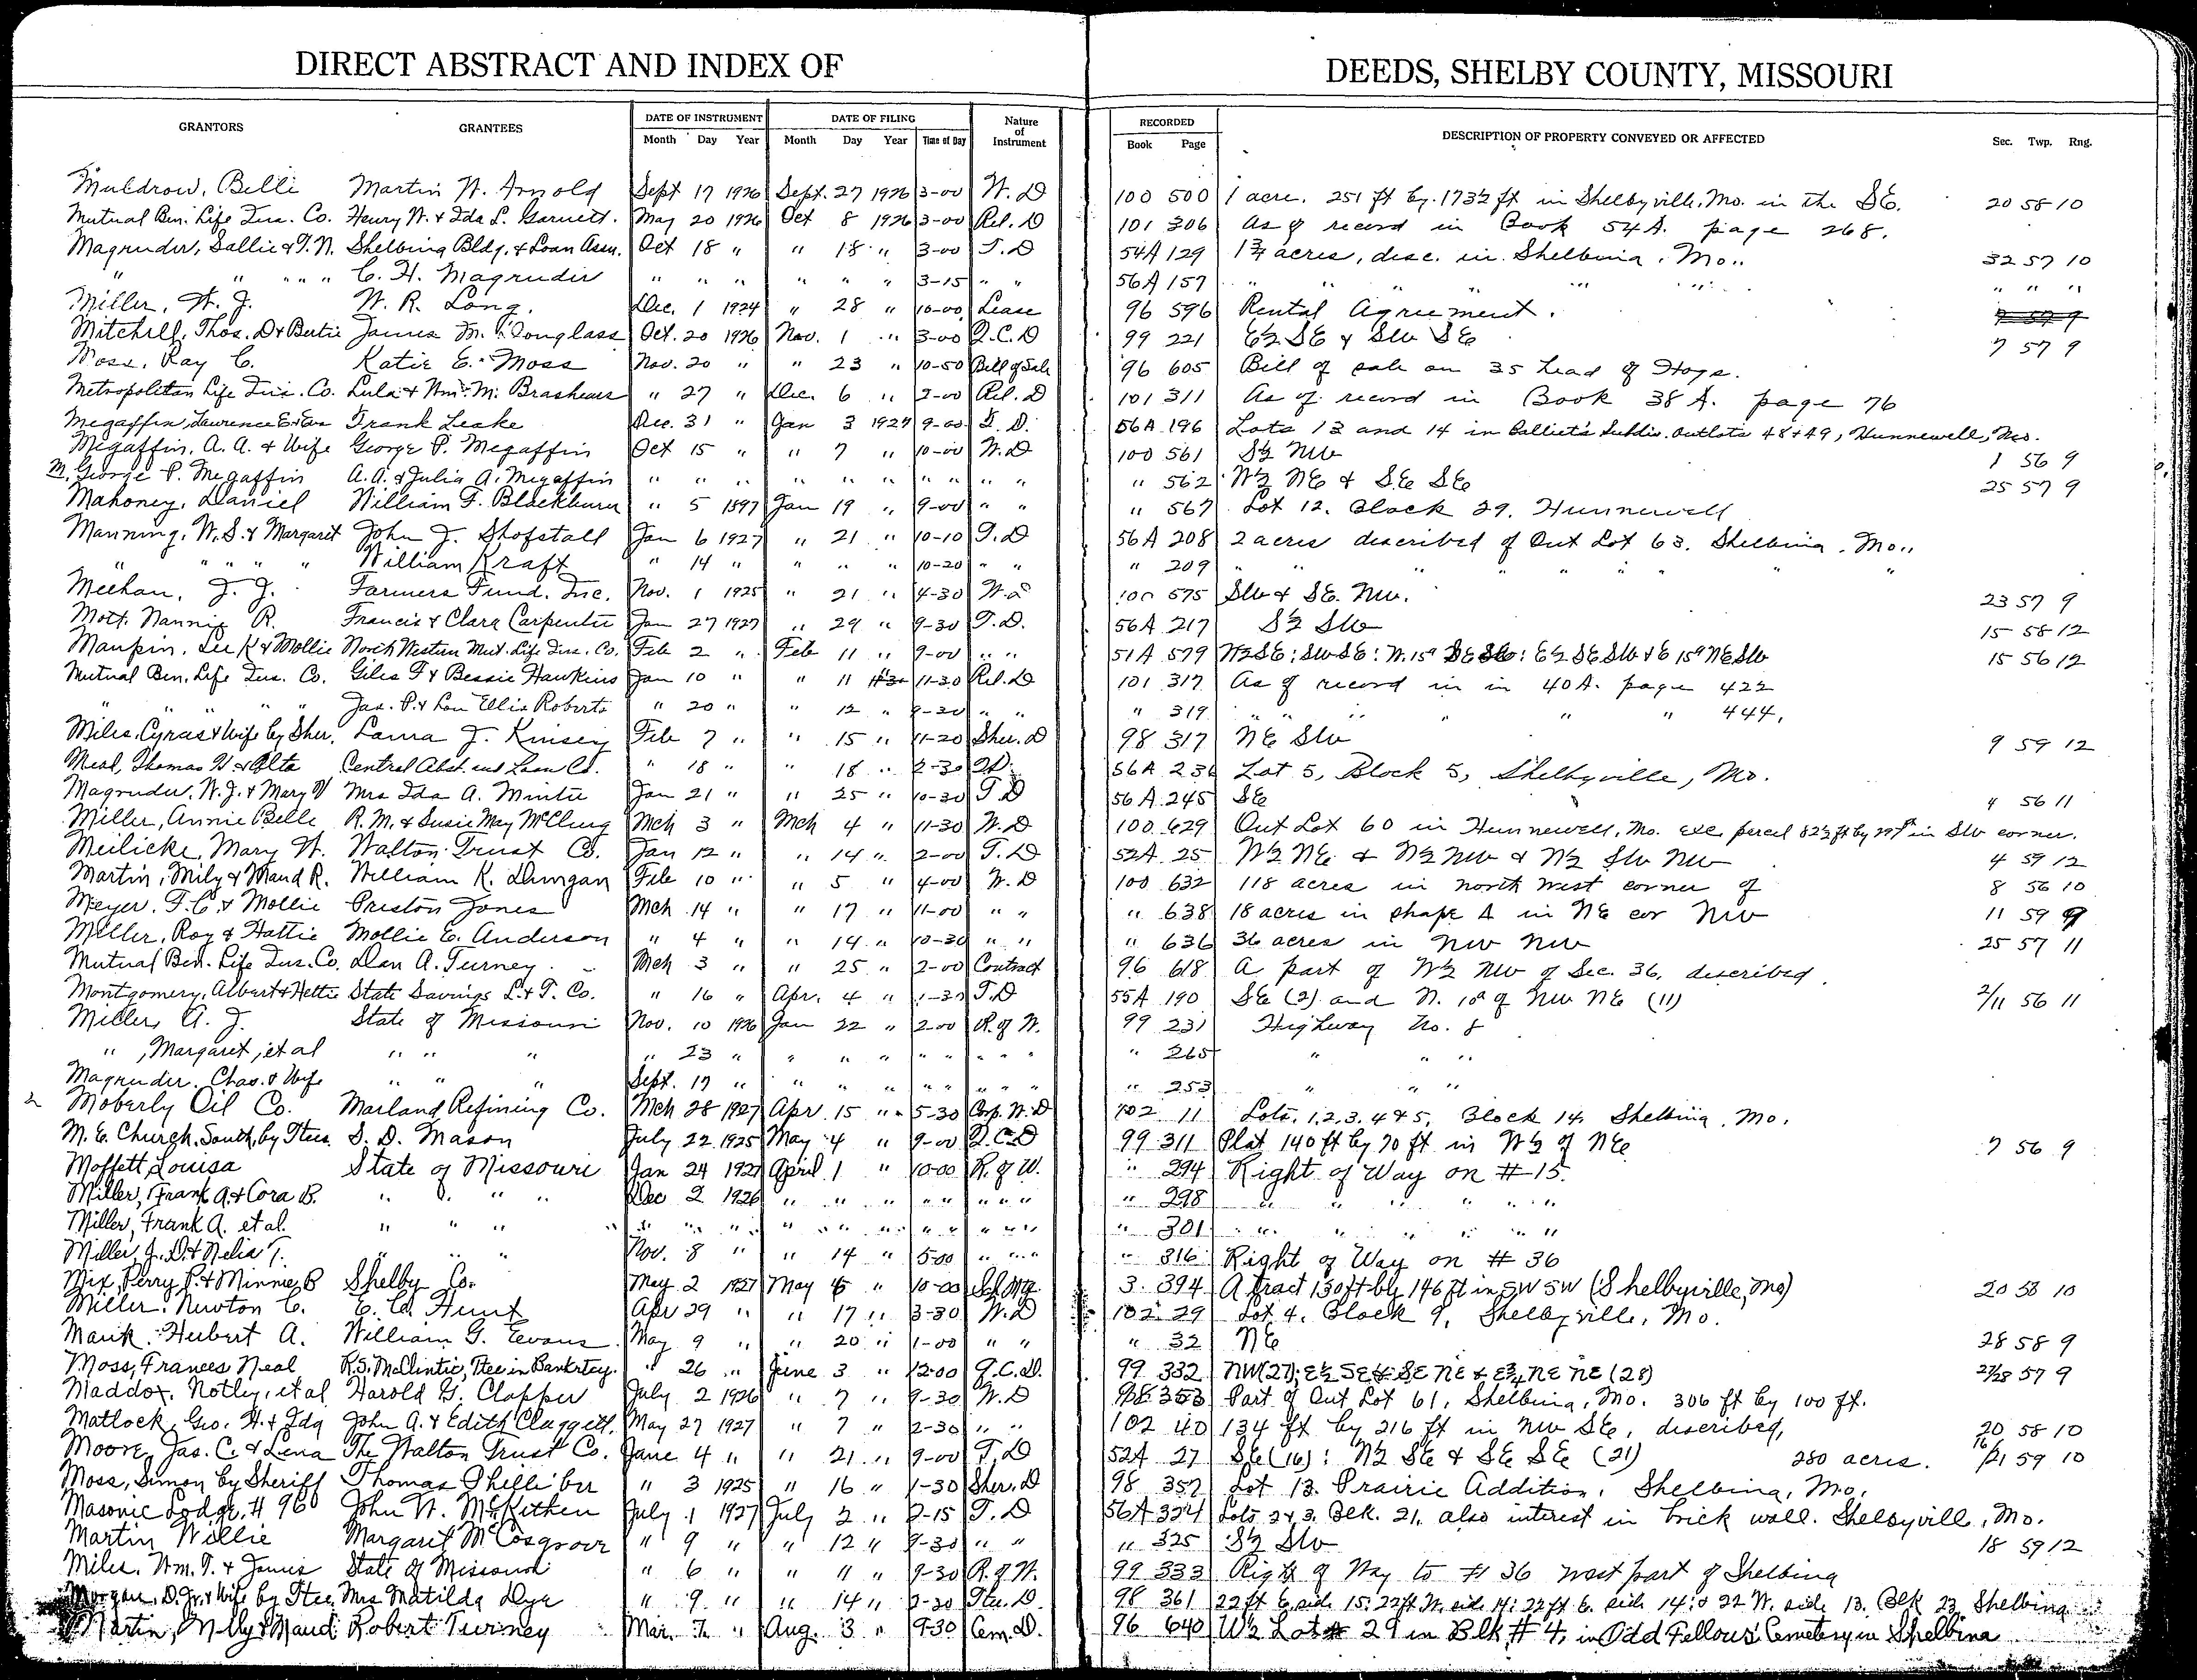 DIRECT ABSTRACT AND INDEX OF DEEDS, SHELBY COUNTY, MISSOURI
GRANTORS GRANTEES DATE OF INSTRUMENT DATE OF FILING Nature of Instrument RECORDED DESCRIPTION OF PROPERTY CONVEYED OR AFFECTED Sec. Twp. Rng.
Month Day Year Month Day Year Time of Day Book Page
Muldrow, Belle Martin W. Arnold Sept 17 1926 Sept. 27 1926 3-00 W. D 100 500 1 acre. 251 ft by 173½ ft in Shelbyville, Mo. in the SE. 20 58 10
Mutual Ben. Life Ins. Co. Henry W. & Ida L. Garnett. May 20 1926 Oct 8 1926 3-00 Rel. D 101 306 As of record in Book 54A. page 268.
Magruder, Sallie & T. N. Shelbina Bldg. & Loan Assn. Oct 18 " " 18 " 3-00 T. D 54A 129 1¾ acres, desc. in Shelbina, Mo.. 32 57 10
" " " " " C. H. Magruder " " " " " " 3-15 " " 56A 157 " " " " " " " "
Miller, W. J. W. R. Long. Dec. 1 1924 " 28 " 10-00 Lease 96 596 Rental Agreement.
Mitchell, Thos. D & Bertie James M. Douglass Oct. 20 1926 Nov. 1 " 3-00 Q. C. D 99 221 E½ SE & SW SE 7 57 9
Moss, Ray C. Katie E. Moss Nov. 20 " " 23 " 10-50 Bill of Sale 96 605 Bill of sale on 35 head of Hogs.
Metropolitan Life Ins. Co. Lula & Wm. M. Brashears " 27 " Dec. 6 " 2-00 Rel. D 101 311 As of record in Book 38 A. page 76
Megaffin, Lawrence E & Eva Frank Leake Dec. 31 " Jan 3 1927 9-00 T. D. 56A 196 Lots 13 and 14 in Balliet's Subdiv. Outlots 48 & 49, Hunnewell, Mo.
Megaffin, A. A. & Wife George P. Megaffin Oct 15 " " 7 " 10-00 W. D 100 561 S½ NW 1 56 9
M, George P. Megaffin A. A. & Julia A. Megaffin " " " " " " " " " " " 562 W½ NE & SE SE 25 57 9
Mahoney, Daniel William F. Blackburn " 5 1897 Jan 19 " 9-00 " " " 567 Lot 12. Block 29. Hunnewell
Manning, W. S. & Margaret John J. Shofstall Jan 6 1927 " 21 " 10-10 T. D 56A 208 2 acres described of Out Lot 63. Shelbina, Mo..
" " " " " William Kraft " 14 " " " " 10-20 " " " 209 " " " " " " " "
Meehan, J. J. Farmers Fund. Inc. Nov. 1 1925 " 21 " 4-30 W. D 100 575 SW & SE. NW. 23 57 9
Mott. Nannie R. Francis & Clara Carpenter Jan 27 1927 " 29 " 9-30 T. D. 56A 217 S½ SW 15 58 12
Maupin. Lee K & Mollie North Western Mut. Life Ins. Co. Feb 2 " Feb 11 " 9-00 " " 51A 579 W½ SE: SW SE: W. 15ª SE SW: E½ SE SW & E 15ª NE SW 15 56 12
Mutual Ben. Life Ins. Co. Giles F & Bessie Hawkins Jan 10 " " 11 11-30 Rel. D 101 317 As of record in in 40A. page 422
" " " " " Jas. P. & Lou Ellis Roberts " 20 " " 12 " 9-30 " " " 319 " " " " " " 444.
Miles, Cyras & Wife by Sher. Laura J. Kinsey Feb 7 " " 15 " 11-20 Sher. D 98 317 NE SW 9 59 12
Neal, Thomas W. & Alta Central Abst. and Loan Co. " 18 " " 18 " 2-30 T.D. 56A 236 Lot 5, Block 5, Shelbyville, Mo.
Magruder. W. J. & Mary V Mrs Ida A. Minter Jan 21 " " 25 " 10-30 T. D 56 A 245 SE 4 56 11
Miller, Annie Belle R. M. & Susie May McClurg Mch 3 " Mch 4 " 11-30 W. D 100 629 Out Lot 60 in Hunnewell, Mo. exc. parcel 82½ ft by 29 ft in SW corner.
Meilicke, Mary W. Walton Trust Co. Jan 12 " " 14 " 2-00 T. D 52A 25 W½ NE & W½ NW & W½ SW NW 4 59 12
Martin, Mily & Maud R. William K. Dungan Feb 10 " " 5 " 4-00 W. D 100 632 118 acres in north west corner of 8 56 10
Meyer. F. C. & Mollie Preston Jones Mch 14 " " 17 " 11-00 " " " 638 18 acres in shape Δ in NE cor NW 11 59 9
Miller, Roy & Hattie Mollie E. Anderson " 4 " " 14 " 10-30 " " " 636 36 acres in NW NW 25 57 11
Mutual Ben. Life Ins. Co. Dan A. Turney. Mch 3 " " 25 " 2-00 Contract 96 618 A part of W½ NW of Sec. 36. described.
Montgomery, Albert & Hettie State Savings L. & T. Co. " 16 " Apr. 4 " 1-30 T. D 55A 190 SE (2) and N. 10ª of NW NE (11) 2/11 56 11
Miller, A. J. State of Missouri Nov. 10 1926 Jan 22 " 2-00 R. of W. 99 231 Highway No. 8
" , Margaret, et al " " " " 23 " " " " " " " " " " 265 " " "
Magruder. Chas. & Wife " " " Sept. 17 " " " " " " " " " " 253 " " "
Moberly Oil Co. Marland Refining Co. Mch 28 1927 Apr. 15 " 5-30 Corp. W. D 102 11 Lots. 1.2.3. 4 & 5. Block 14. Shelbina, Mo.
M. E. Church, South, by Ttees. S. D. Mason July 22 1925 May 4 " 9-00 Q. C. D 99 311 Plat 140 ft by 70 ft in W½ of NE 7 56 9
Moffett, Louisa State of Missouri Jan 24 1927 April 1 " 10-00 R. of W. " 294 Right of Way on # 15.
Miller, Frank A. & Cora B. " " " " Dec 2 1926 " " " " " " " " " 298 " " " " " "
Miller, Frank A. et al. " " " " " " " " " " " " " " " 301 " " " " " "
Miller, J. D. & Nelia T. " " " Nov. 8 " " 14 " 5-00 " " " " 316 Right of Way on # 36
Mix, Perry P. & Minnie B Shelby Co. May 2 1927 May 5 " 10-00 Sch. Mtg. 3 394 A tract 130 ft by 146 ft in SW SW (Shelbyville, Mo) 20 58 10
Miller. Newton C. E. Ed. Hunt Apr 29 " " 17 " 3-30 W. D 102 29 Lot 4. Block 9, Shelbyville, Mo.
Mauk. Hubert A. William G. Evans. May 9 " " 20 " 1-00 " " " 32 NE 28 58 9
Moss, Frances Neal R. S. McClintic, Ttee in Bankrtcy. " 26 " June 3 " 12-00 Q. C. D. 99 332 NW (27); E½ SE & SE NE & E¾ NE NE (28) 27/28 57 9
Maddox. Notley, et al Harold G. Clapper July 2 1926 " 7 " 9-30 W. D 98 353 Part of Out Lot 61, Shelbina, Mo. 306 ft by 100 ft.
Matlock, Geo. H. & Ida John A. & Edith Claggett. May 27 1927 " 7 " 2-30 " " 102 40 134 ft by 216 ft in NW SE, described, 20 58 10
Moore, Jas. C. & Lena The Walton Trust Co. June 4 " " 21 " 9-00 T. D 52A 27 SE (16): W½ SE & SE SE (21) 280 acres. 16/21 59 10
Moss, Simon by Sheriff Thomas Phelli ber " 3 1925 " 16 " 1-30 Sher. D 98 357 Lot 13. Prairie Addition, Shelbina, Mo.
Masonic Lodge, # 96 John W. McKithen July 1 1927 July 2 " 2-15 T. D 56A 324 Lots 2 & 3. Blk. 21. also interest in brick wall. Shelbyvill, Mo.
Martin Willie Margaret McCosgrove " 9 " " 12 " 9-30 " " " 325 S½ SW 18 59 12
Miles. Wm. T. & James State of Missouri " 6 " " 11 " 9-30 R. of W. 99 333 Right of Way to # 36 west part of Shelbina
Morgan, D. Jr. & Wife by Ttee. Mrs Matilda Dye " 9 " " 14 " 2-30 Ttee. D. 98 361 22 ft E. side 15: 22 ft W. side 14: 22 ft E. side 14: & 22 W. side 13. Blk 23, Shelbina
Martin, Milly & Maud Robert Turney Mar. 7 " Aug. 3 " 9-30 Cem. D. 96 640 W½ Lot # 29 in Blk # 4, in Odd Fellows' Cemetery in Shelbina